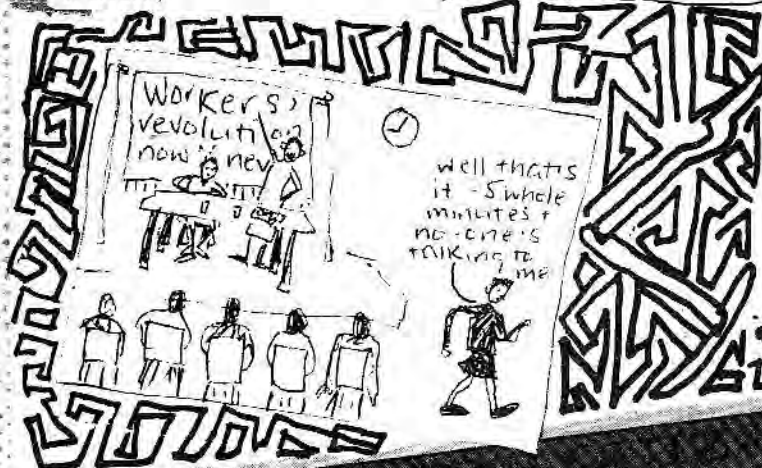 Workers,
revolution
now
well that's
it - 5 whole
minutes +
no-one's
talking to
me